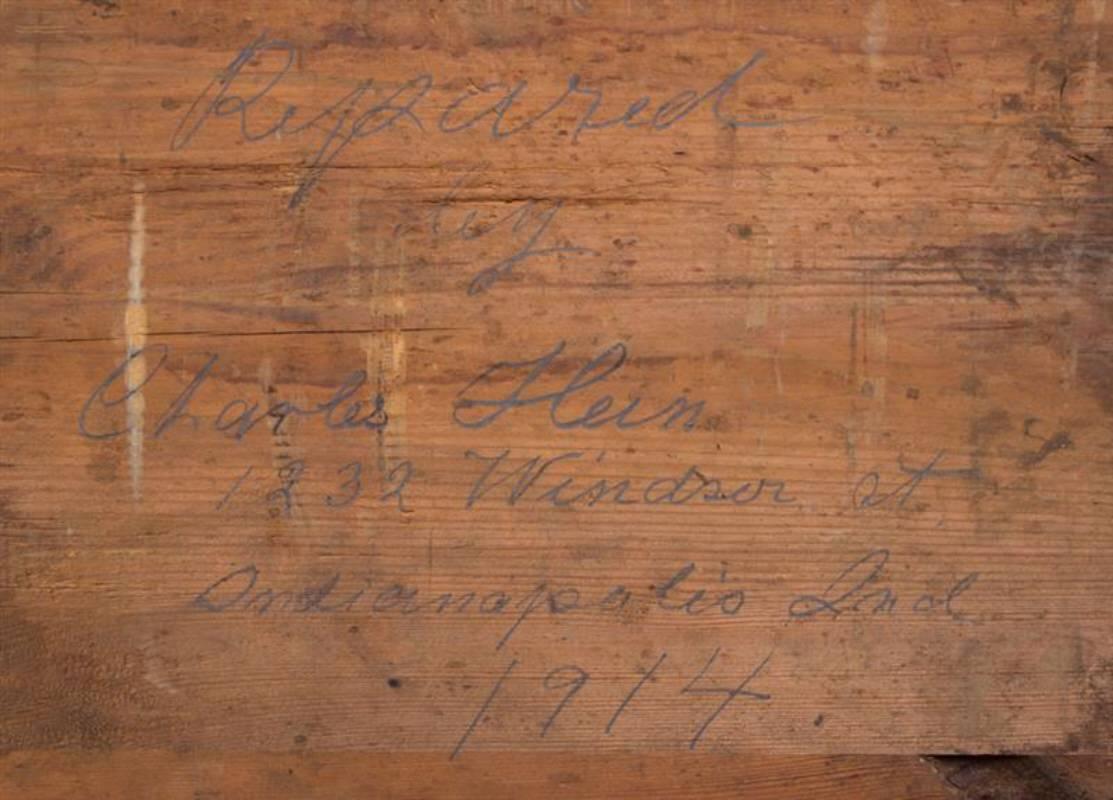 Repared
by
Charles Hein
1232 Windsor st.
Indianapolis Ind
1914.